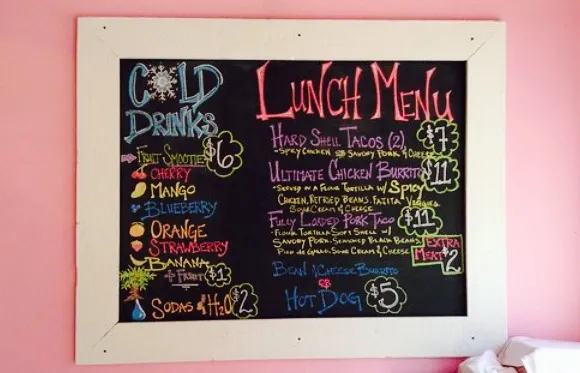 COLD
DRINKS
FRUIT SMOOTIE $6
CHERRY
MANGO
BLUEBERRY
ORANGE
STRAWBERRY
BANANA
+ FRUIT $1
SODAS & H2O $2
LUNCH MENU
HARD SHELL TACOS (2) $7
- SPICY CHICKEN OR SAVORY PORK & CHEESE
ULTIMATE CHICKEN BURRITO $11
- SERVED IN A FLOUR TORTILLA W/ SPICY
CHICKEN, REFRIED BEANS, FAJITA VEGGIES,
SOUR CREAM & CHEESE
FULLY LOADED PORK TACO $11
- FLOUR TORTILLA SOFT SHELL W/
SAVORY PORK, SEASONED BLACK BEANS,
PICO DE GALLO, SOUR CREAM & CHEESE
EXTRA
MEAT $2
BEAN & CHEESE BURRITO
OR
HOT DOG $5